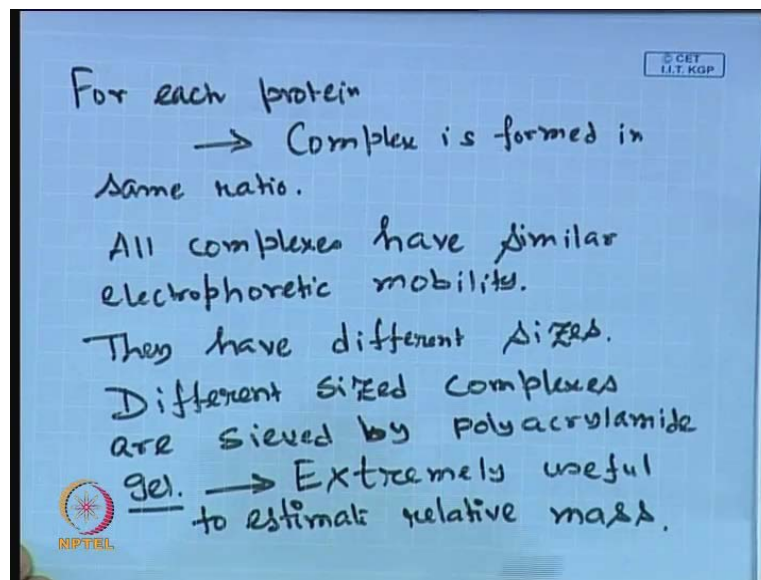 © CET
I.I.T. KGP
For each protein
→ Complex is formed in
same ratio.
All complexes have similar
electrophoretic mobility.
They have different sizes.
Different sized complexes
are sieved by polyacrylamide
gel. → Extremely useful
to estimate relative mass.
NPTEL